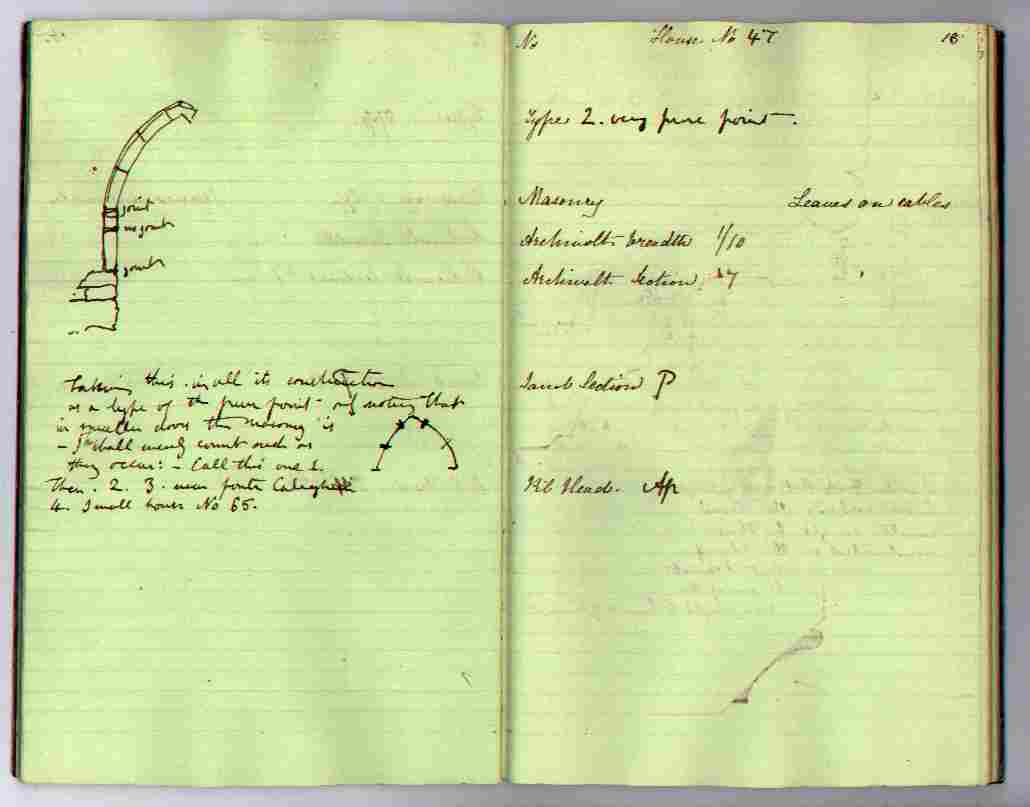 joint
no joint
joint
Taking this in all its construction
as a type of th pure point - only noting that
in smaller doors the masonry is
- I shall merely count each as
they occur: - Call this one 1.
Then . 2. 3. near ponte
4. Small house No 65.
No House No 47 18
Type 2. very pure point.
Masonry Leaves on cables
Archivolt breadth 1/10
Archivolt Section 27
Jamb Section P
Heads. Ap